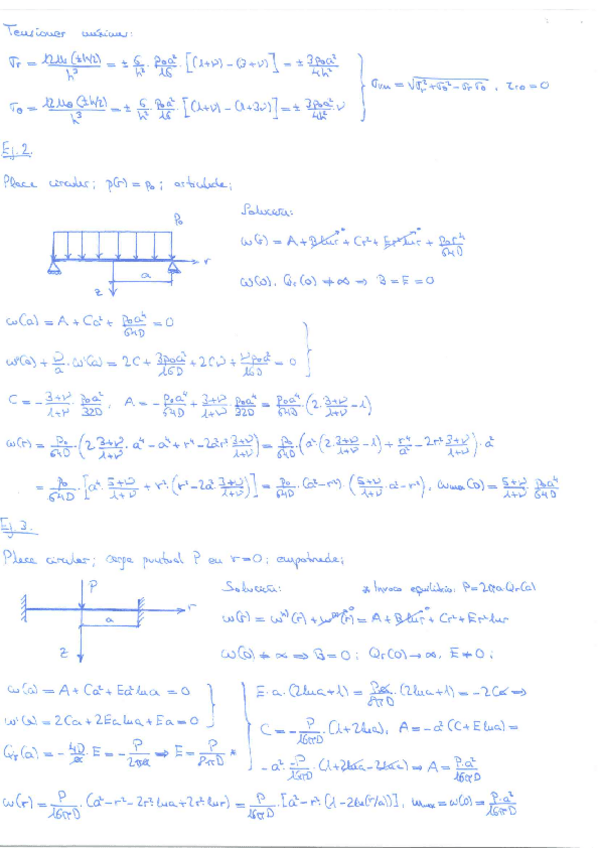 Tensiones máximas:
σr = 12Mr(±h/2)/h³ = ± 6/h² · p₀a²/16 [(1+ν) − (3+ν)] = ± 3p₀a²/4h²
σvm = √(σr² + σθ² − σrσθ), τrθ = 0
σθ = 12Mθ(±h/2)/h³ = ± 6/h² · p₀a²/16 · [(1+ν) − (1+3ν)] = ± 3p₀a²/4h² · ν
Ej. 2.
Placa circular; p(r) = p₀; articulada;
Solución:
p₀
ω(r) = A + B lnr + Cr² + Er² lnr + p₀r⁴/64D
r
a
z
ω(0), Qr(0) ≠ ∞ ⇒ B = E = 0
ω(a) = A + Ca² + p₀a⁴/64D = 0
ω''(a) + ν/a · ω'(a) = 2C + 3p₀a²/16D + 2Cν + νp₀a²/16D = 0
C = − 3+ν/1+ν · p₀a²/32D, A = − p₀a⁴/64D + 3+ν/1+ν · p₀a⁴/32D = p₀a⁴/64D · (2 · 3+ν/1+ν − 1)
ω(r) = p₀/64D · (2 3+ν/1+ν · a⁴ − a⁴ + r⁴ − 2a²r² 3+ν/1+ν) = p₀/64D · (a² · (2 · 3+ν/1+ν − 1) + r⁴/a² − 2r² 3+ν/1+ν) · a²
= p₀/64D · [a⁴ · 5+ν/1+ν + r² · (r² − 2a² 3+ν/1+ν)] = p₀/64D · (a² − r²) · (5+ν/1+ν · a² − r²), ωmax(0) = 5+ν/1+ν · p₀a⁴/64D
Ej 3.
Placa circular; carga puntual P en r=0; empotrada;
P
Solución:
* Impongo equilibrio: P = 2πa Qr(a)
r
a
z
ω(r) = ωʰ(r) + ωᵖ(r) = A + B lnr + Cr² + Er² lnr
ω(0) ≠ ∞ ⇒ B = 0; Qr(0) → ∞, E ≠ 0;
ω(a) = A + Ca² + Ea² lna = 0
E · a · (2lna + 1) = Pa/8πD · (2lna + 1) = −2Ca ⇒
ω'(a) = 2Ca + 2Ea lna + Ea = 0
C = − P/16πD · (1 + 2lna), A = −a² (C + E lna) =
Qr(a) = − 4D/a · E = − P/2πa ⇒ E = P/8πD *
−a² · −P/16πD · (1 + 2lna − 2lna) ⇒ A = P·a²/16πD
ω(r) = P/16πD · (a² − r² − 2r² lna + 2r² lnr) = P/16πD · [a² − r² · (1 − 2ln(r/a))], ωmax = ω(0) = P·a²/16πD